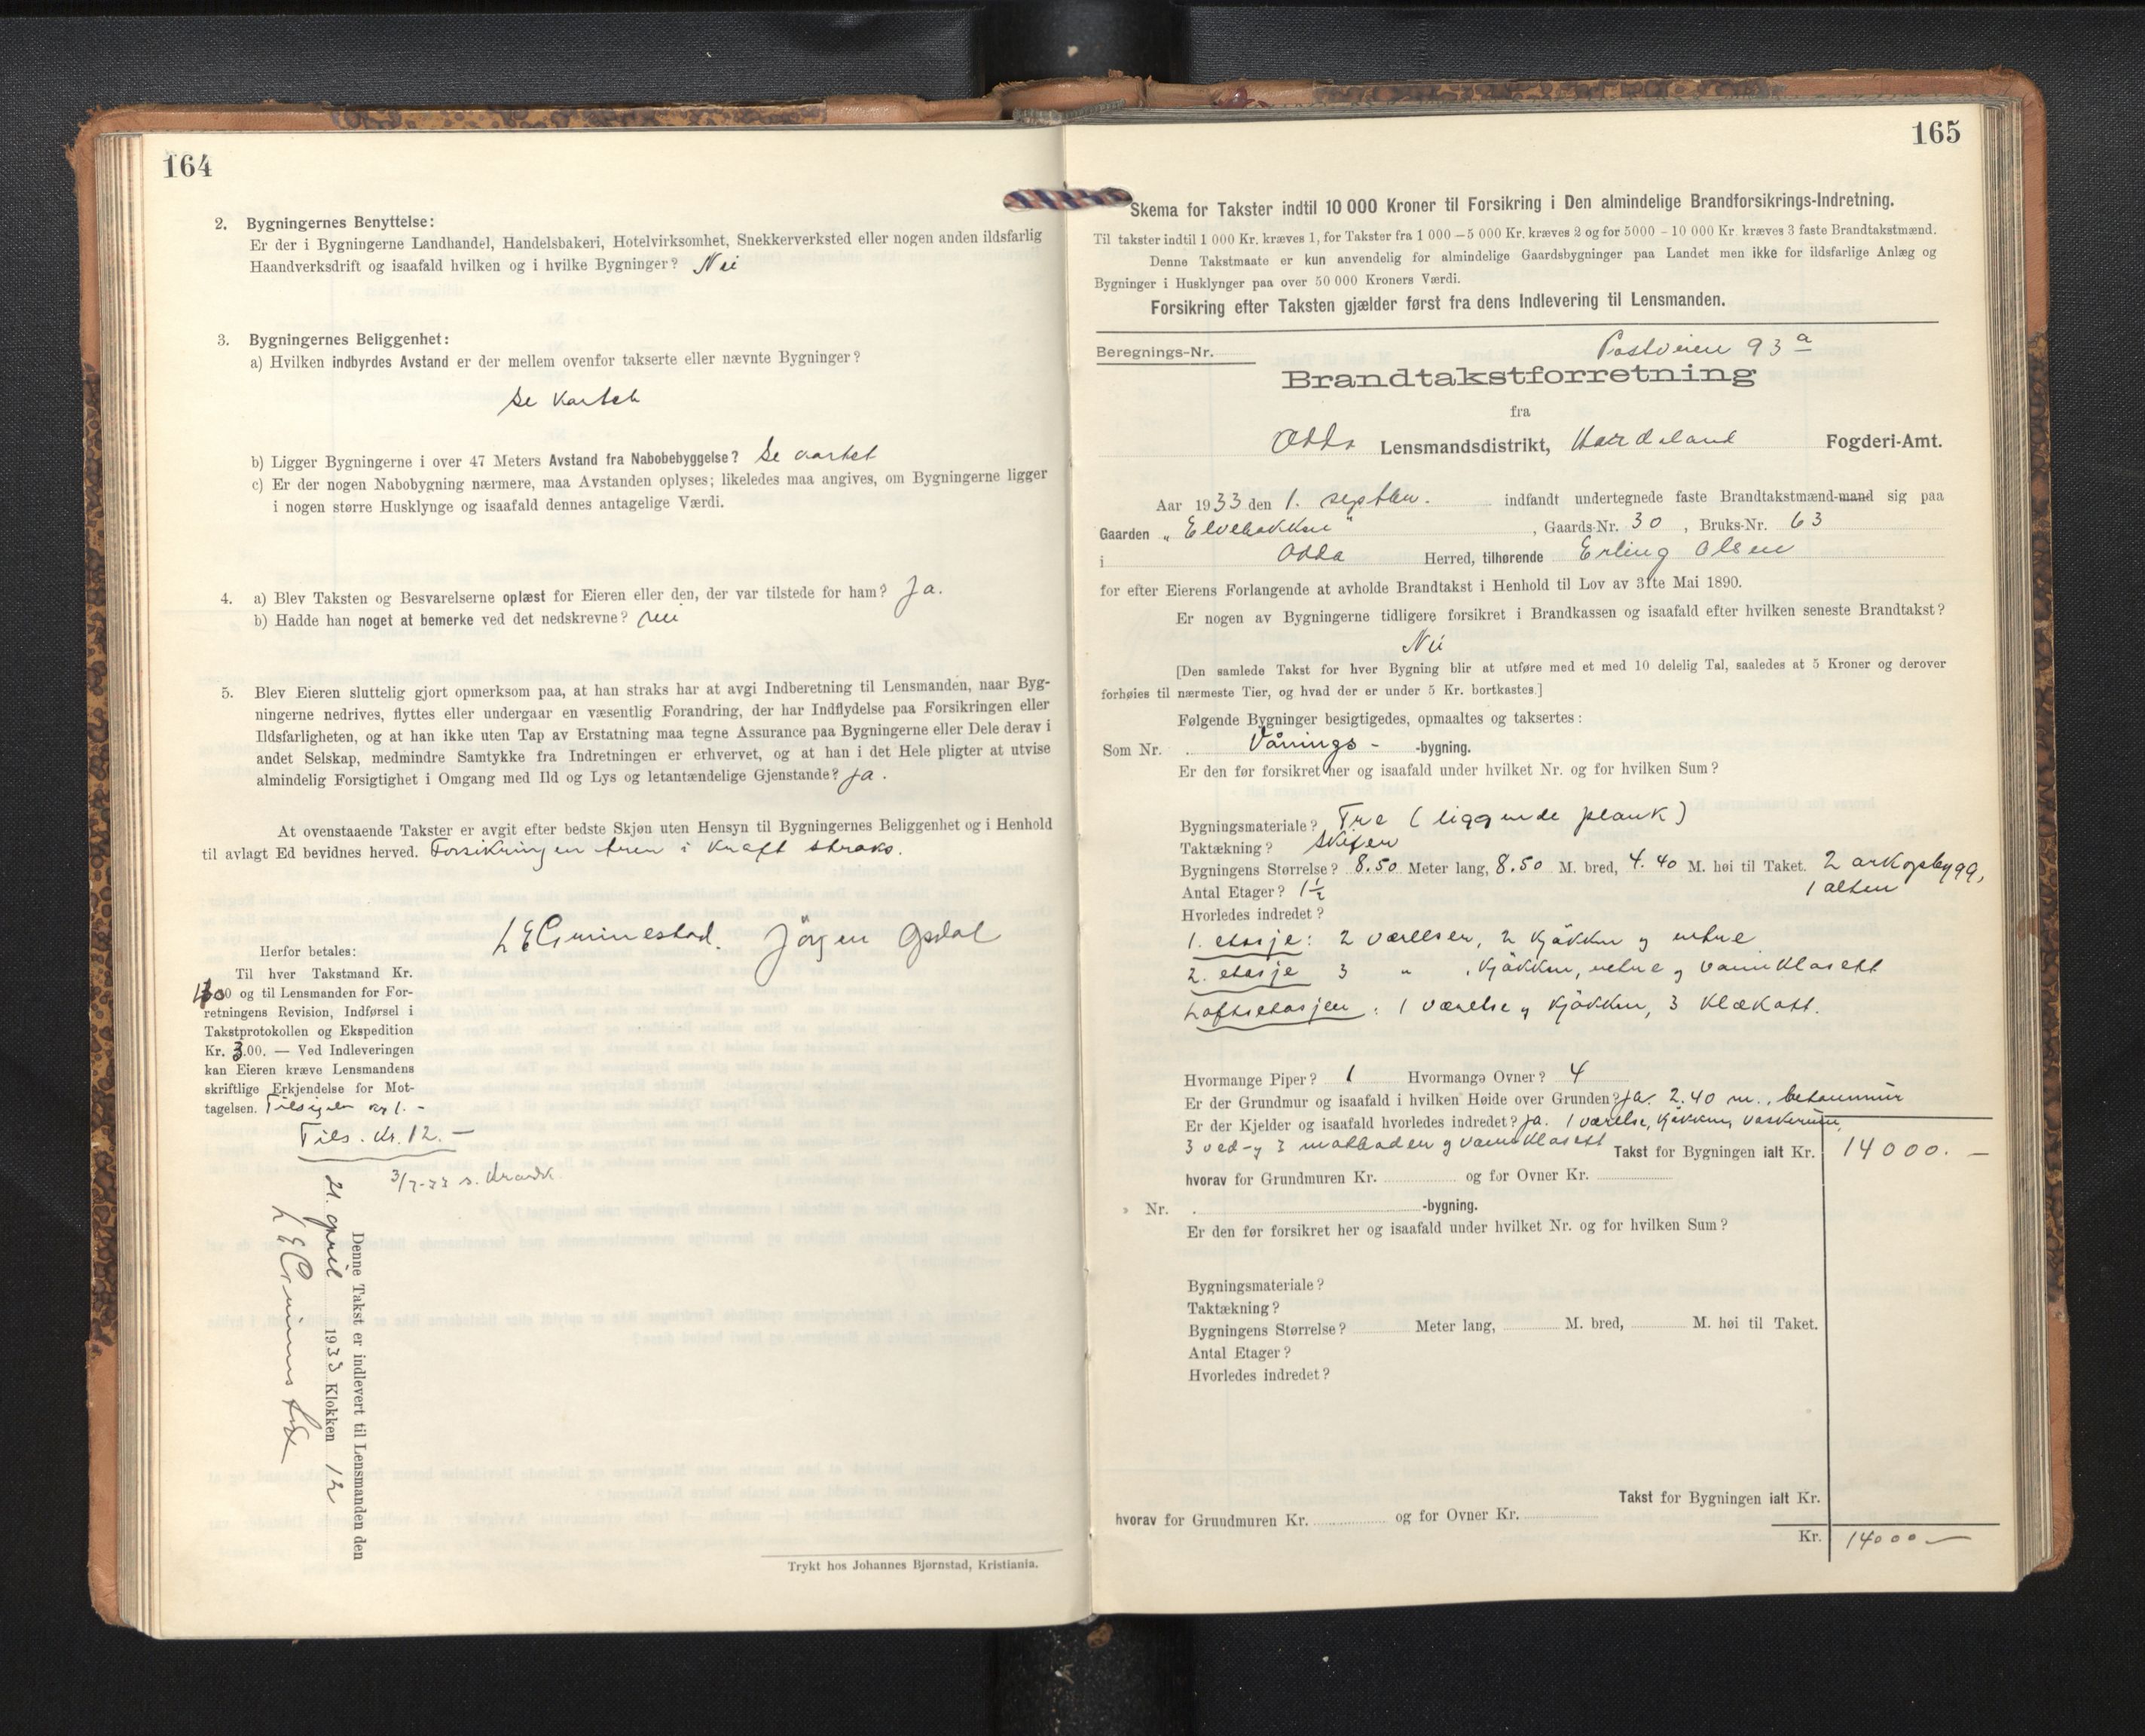 164
2. Bygningernes Benyttelse:
Er der i Bygningerne Landhandel, Handelsbakeri, Hotelvirksomhet, Snekkerverksted eller nogen anden ildsfarlig
Haandverksdrift og isaafald hvilken og i hvilke Bygninger? Nei
3. Bygningernes Beliggenhet:
a) Hvilken indbyrdes Avstand er der mellem ovenfor takserte eller nævnte Bygninger?
Se kartet
b) Ligger Bygningerne i over 47 Meters Avstand fra Nabobebyggelse? Se kartet
c) Er der nogen Nabobygning nærmere, maa Avstanden oplyses; likeledes maa angives, om Bygningerne ligger
i nogen større Husklynge og isaafald dennes antagelige Værdi.
4. a) Blev Taksten og Besvarelserne oplæst for Eieren eller den, der var tilstede for ham? Ja.
b) Hadde han noget at bemerke ved det nedskrevne? nei
5. Blev Eieren sluttelig gjort opmerksom paa, at han straks har at avgi Indberetning til Lensmanden, naar Byg-
ningerne nedrives, flyttes eller undergaar en væsentlig Forandring, der har Indflydelse paa Forsikringen eller
Ildsfarligheten, og at han ikke uten Tap av Erstatning maa tegne Assurance paa Bygningerne eller Dele derav i
andet Selskap, medmindre Samtykke fra Indretningen er erhvervet, og at han i det Hele pligter at utvise
almindelig Forsigtighet i Omgang med Ild og Lys og letantændelige Gjenstande? Ja.
At ovenstaaende Takster er avgit efter bedste Skjøn uten Hensyn til Bygningernes Beliggenhet og i Henhold
til avlagt Ed bevidnes herved. Forsikringen tren i kraft straks.
L E Grinnestad. Jörgen Opdal
Herfor betales:
Til hver Takstmand Kr.
00 og til Lensmanden for For-
retningens Revision, Indførsel i
Takstprotokollen og Ekspedition
Kr. 3.00. — Ved Indleveringen
kan Eieren kræve Lensmandens
skriftlige Erkjendelse for Mot-
tagelsen.
Tils. kr. 12. —
Denne Takst er indlevert til Lensmanden den
21. april 1933 Klokken 12
Trykt hos Johannes Bjørnstad, Kristiania.
165
Skema for Takster indtil 10 000 Kroner til Forsikring i Den almindelige Brandforsikrings-Indretning.
Til takster indtil 1 000 Kr. kræves 1, for Takster fra 1 000 — 5 000 Kr. kræves 2 og for 5000 – 10 000 Kr. kræves 3 faste Brandtakstmænd.
Denne Takstmaate er kun anvendelig for almindelige Gaardsbygninger paa Landet men ikke for ildsfarlige Anlæg og
Bygninger i Husklynger paa over 50 000 Kroners Værdi.
Forsikring efter Taksten gjælder først fra dens Indlevering til Lensmanden.
Beregnings-Nr. Postveien 93 a
Brandtakstforretning
fra
Odda Lensmandsdistrikt, Hordaland Fogderi-Amt.
Aar 1933 den 1. septbr. indfandt undertegnede faste Brandtakstmænd-mand sig paa
Gaarden „Elvebakken“, Gaards-Nr. 30, Bruks-Nr. 63
i Odda Herred, tilhørende Erling Olsen
for efter Eierens Forlangende at avholde Brandtakst i Henhold til Lov av 31te Mai 1890.
Er nogen av Bygningerne tidligere forsikret i Brandkassen og isaafald efter hvilken seneste Brandtakst?
Nei
[Den samlede Takst for hver Bygning blir at utføre med et med 10 delelig Tal, saaledes at 5 Kroner og derover
forhøies til nærmeste Tier, og hvad der er under 5 Kr. bortkastes.]
Følgende Bygninger besigtigedes, opmaaltes og taksertes:
Som Nr. Vånings- -bygning.
Er den før forsikret her og isaafald under hvilket Nr. og for hvilken Sum?
Bygningsmateriale? Tre (liggende plank)
Taktækning? Skifer
Bygningens Størrelse? 8.50 Meter lang, 8.50 M. bred, 4.40 M. høi til Taket. 2 arkopbygg,
Antal Etager? 1½ 1 altan
Hvorledes indredet?
1. etasje: 2 værelser, 2 kjökken og entre
2. etasje 3 " , kjökken, entre og vannklosett
Loftsetasjen: 1 værelse og kjökken, 3 klækott.
Hvormange Piper? 1 Hvormange Ovner? 4
Er der Grundmur og isaafald i hvilken Høide over Grunden? Ja. 2.40 m., betonmur
Er der Kjelder og isaafald hvorledes indredet? Ja. 1 værelse, kjökken, vaskerum,
3 ved- og 3 matboder og vannklosett Takst for Bygningen ialt Kr. 14000. —
hvorav for Grundmuren Kr. og for Ovner Kr.
» Nr. -bygning.
Er den før forsikret her og isaafald under hvilket Nr. og for hvilken Sum?
Bygningsmateriale?
Taktækning?
Bygningens Størrelse? Meter lang, M. bred, M. høi til Taket.
Antal Etager?
Hvorledes indredet?
Takst for Bygningen ialt Kr.
hvorav for Grundmuren Kr. og for Ovner Kr.
Kr. 14000 —